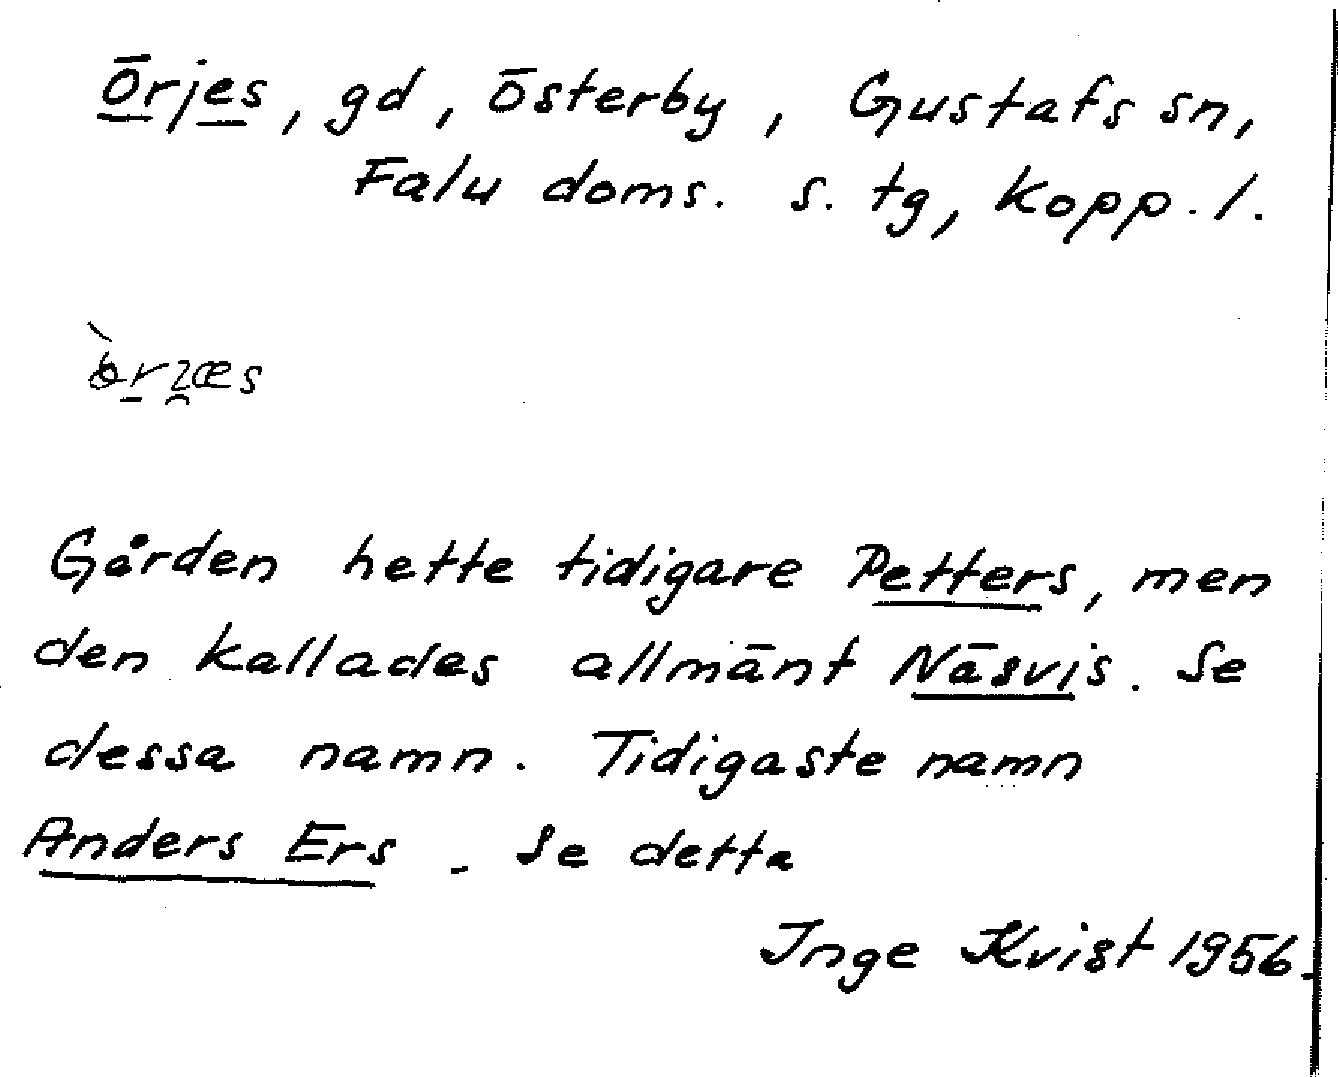 Örjes, gd, Österby, Gustafs sn,
Falu doms. s. tg, Kopp. l.
Gården hette tidigare Petters, men
den kallades allmänt Näsvis. Se
dessa namn. Tidigaste namn
Anders Ers. Se detta
Inge Kvist 1956.